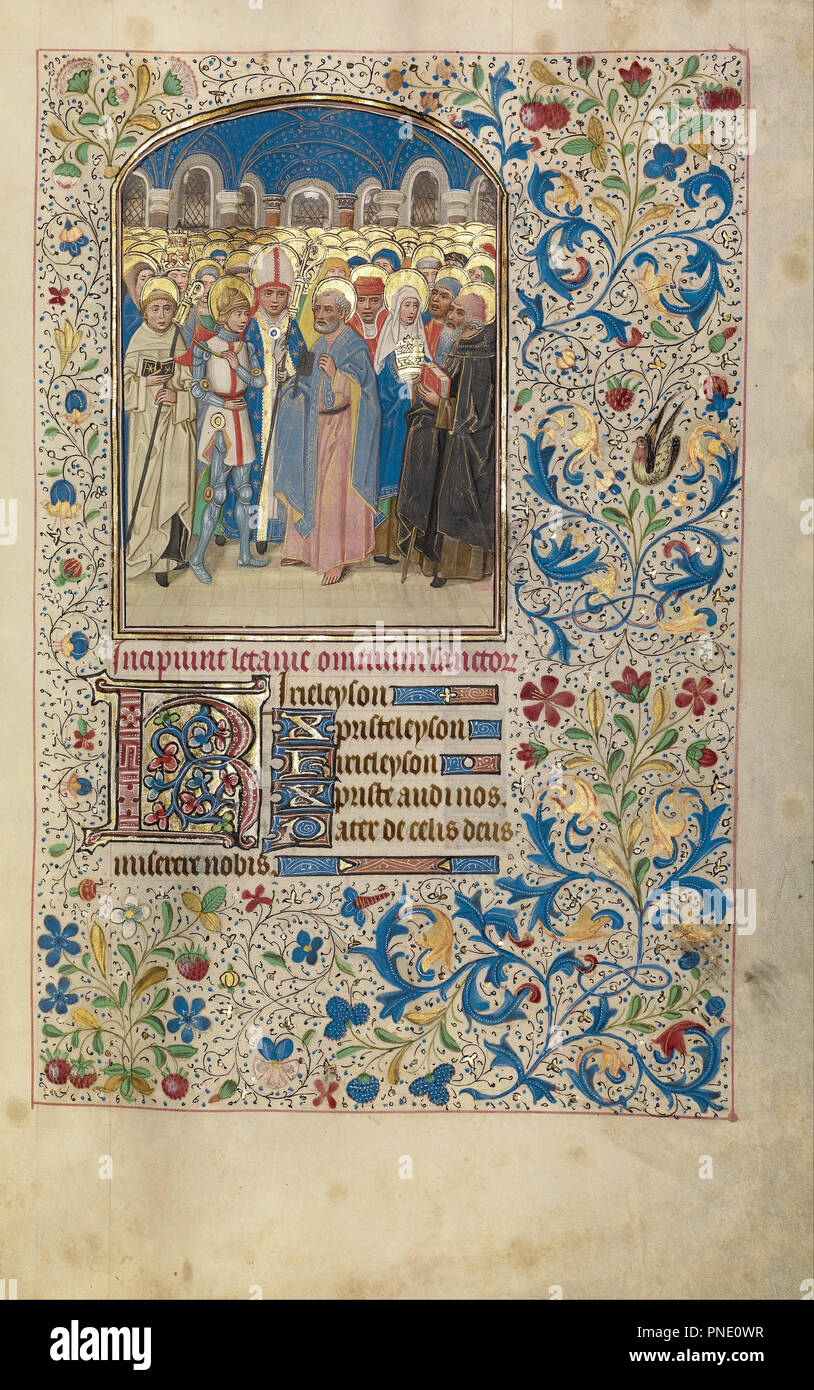 Incipiunt letanie omnium sanctorꝝ
Kirieleyson
Xpristeleyson
Kirieleyson
Xpriste audi nos.
Pater de celis deus
miserere nobis.
alamy
Image ID: PNE0WR
www.alamy.com